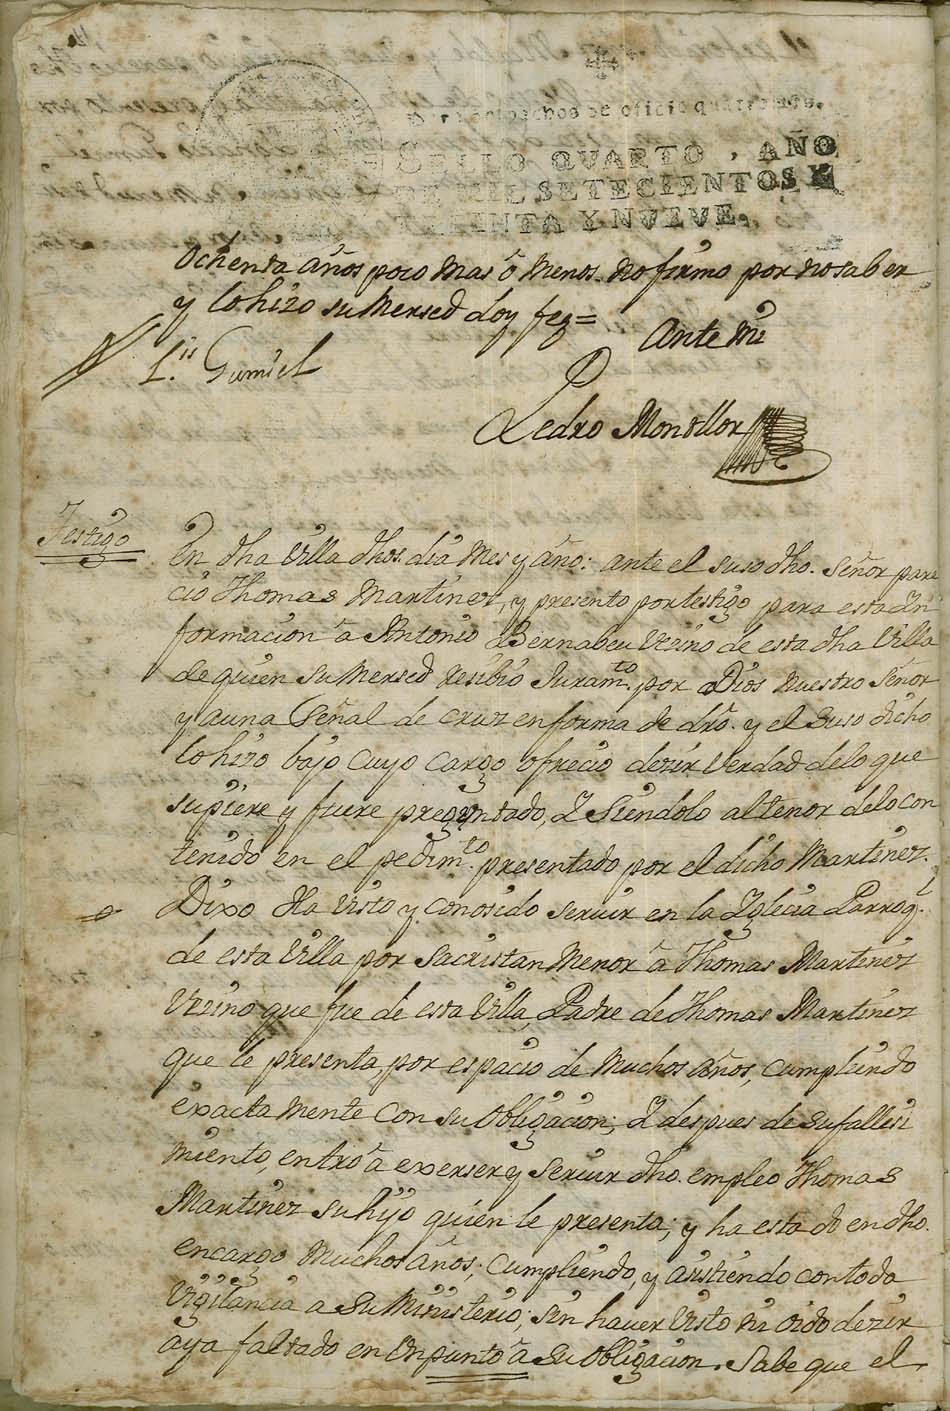 despachos de oficio quatro mrs.
SELLO QVARTO, AÑO
DE MIL SETECIENTOS Y
TREINTA Y NVEVE.
ochenta años poco mas ô menos. no firmo por no saber
y lo hizo su Mersed doy fee=
Ante mi
Gumiel
Pedro Monllor
Testigo
En dha Villa dhos. dia mes y año: ante el suso dho. señor pare
cio Thomas Martinez, y presento por testigo para esta In
formacion â Antonio Bernabeu Vezino de esta dha Villa
de quien su Mersed resibio Juramto. por Dios nuestro señor
y a una señal de cruz en forma de dro. y el suso dicho
lo hizo bajo cuyo cargo ofrecio dezir verdad de lo que
supiere y fuere preguntado, Y siendolo al tenor de lo con
tenido en el pedimto. presentado por el dicho Martinez.
Dixo Ha visto y conosido servir en la Iglecia Parroql.
de esta Villa por sacristan menor â Thomas Martinez
Vezino que fue de esta Villa, Padre de Thomas Martinez
que le presenta, por espacio de muchos años, cumpliendo
exacta mente con su obligacion; Y despues de su fallesi
miento, entrô â exerser y servir dho. empleo Thomas
Martinez su hijo quien le presenta; y ha estado en dho.
encargo muchos años; cumpliendo, y asistiendo con toda
vigilancia a su Ministerio; sin haver visto ni oido dezir
aya faltado en un punto â su obligacion. Sabe que el